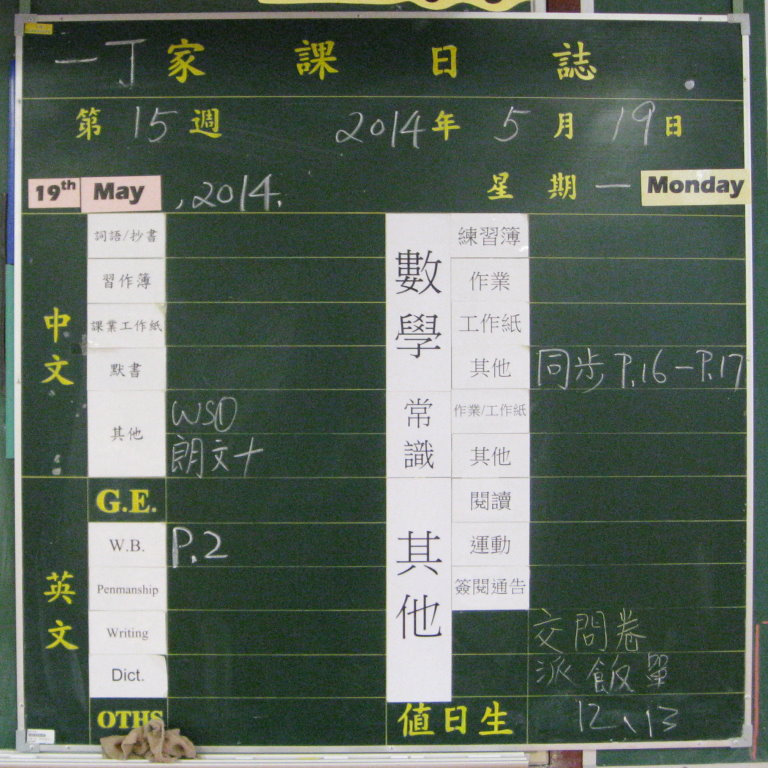 一丁家課日誌
第15週 2014年5月19日
19th May , 2014. 星期一 Monday
中文
詞語/抄書
習作簿
課業工作紙
默書
其他 WS①
朗文十
英文
G.E.
W.B. P.2
Penmanship
Writing
Dict.
OTHS
數學
練習簿
作業
工作紙
其他 同步 P.16－P.17
常識
作業/工作紙
其他
其他
閱讀
運動
簽閱通告
交問卷
派飯單
值日生 12、13